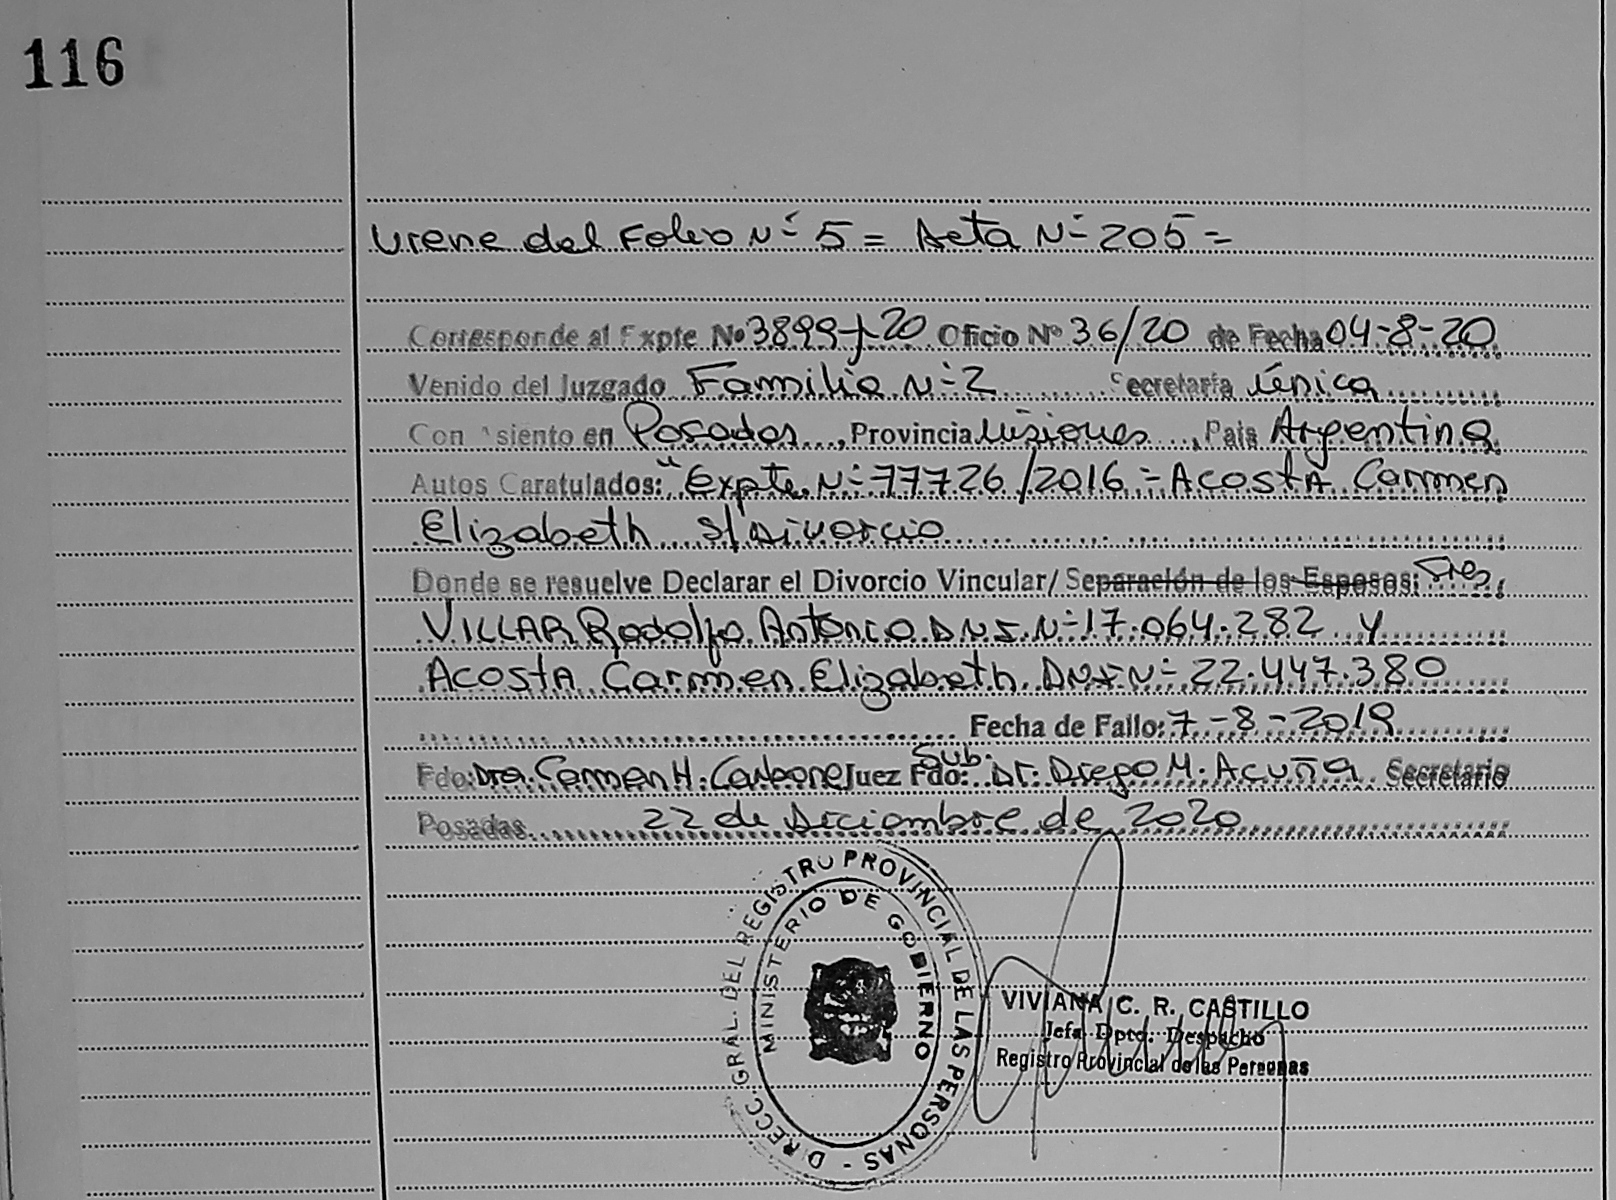 116
Viene del Folio Nº 5 = Acta Nº 205 =
Corresponde al Expte Nº 3899-J-20 Oficio Nº 36/20 de Fecha 04-8-20
Venido del Juzgado Familia Nº 2 Secretaría Única
Con Asiento en Posadas, Provincia Misiones, País Argentina
Autos Caratulados: "Expte. Nº 77726/2016 = Acosta Carmen
Elizabeth s/Divorcio
Donde se resuelve Declarar el Divorcio Vincular/ Separación de los Esposos: Sres.
VILLAR Rodolfo Antonio D.N.I. Nº 17.064.282 y
Acosta Carmen Elizabeth DNI Nº 22.447.380
Fecha de Fallo: 7-8-2019
Fdo: Dra. Carmen H. Carbone Juez Fdo: Sub. Dr. Diego M. Acuña Secretario
Posadas 22 de Diciembre de 2020
DIRECC. GRAL. DEL REGISTRO PROVINCIAL DE LAS PERSONAS -
MINISTERIO DE GOBIERNO
VIVIANA C. R. CASTILLO
Jefa Dpto. Despacho
Registro Provincial de las Personas